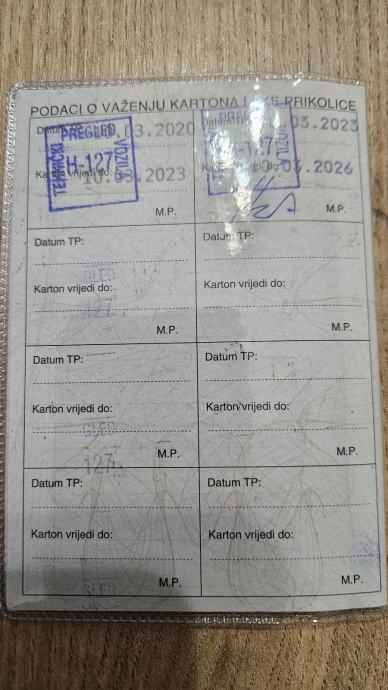 PODACI O VAŽENJU KARTONA LAKE PRIKOLICE
Datum TP: .03.2020
PREGLED
TEHNIČKI
H-127
VOZILA
Karton vrijedi do: .2023
M.P.
03.2023
VOZILA
03.2026
M.P.
Datum TP:
Karton vrijedi do:
M.P.
Datum TP:
Karton vrijedi do:
M.P.
Datum TP:
Karton vrijedi do:
M.P.
Datum TP:
Karton vrijedi do:
M.P.
Datum TP:
Karton vrijedi do:
M.P.
Datum TP:
Karton vrijedi do:
M.P.
GLED
127
GLED
127
GLED